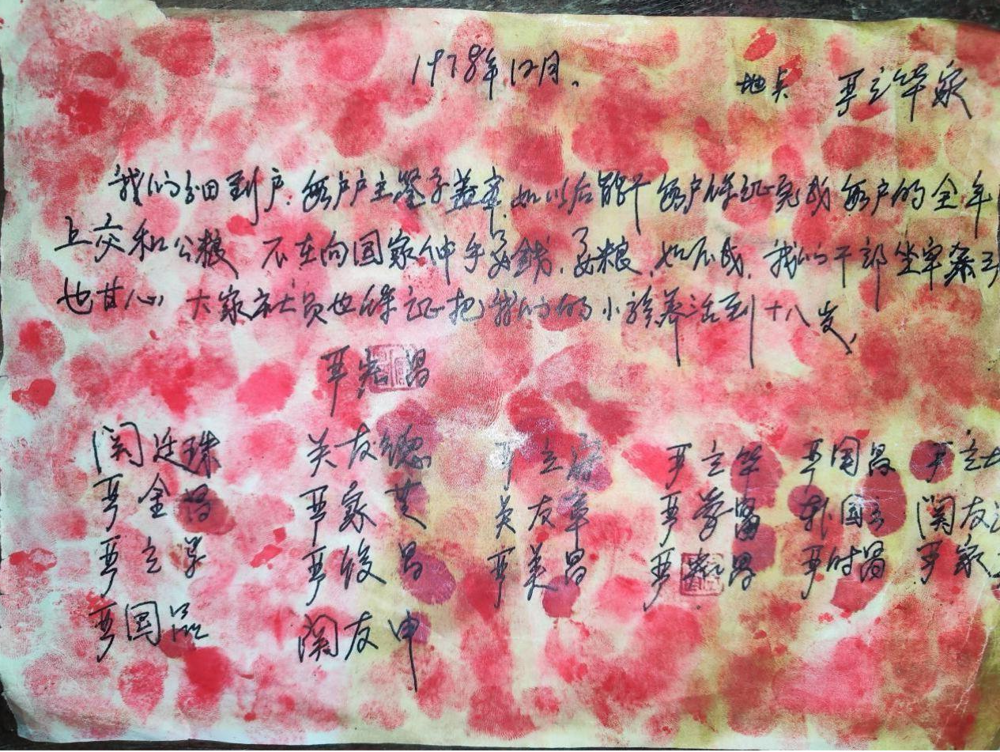 1978年12月、 地点 严立华家
我们分田到户，每户户主签字盖章，如以后能干，每户保证完成每户的全年
上交和公粮 不在向国家伸手要钱，要粮，如不成，我们干部坐牢杀头
也甘心，大家社员也保证把我们的小孩养活到十八岁，
严宏昌
关廷珠 关友德 严立富 严立华 严国昌 严立
严金昌 严家芝 关友章 严学昌 韩国云 关友
严立学 严俊昌 严美昌 严宏昌 严付昌 严家
严国品 关友申